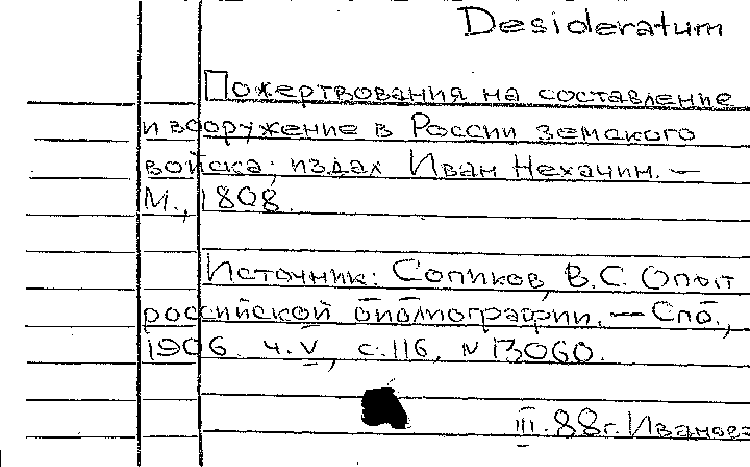 Desideratum
Пожертвования на составление
и вооружение в России земского
войска; издал Иван Нехачин. —
М., 1808.
Источник: Сопиков, В.С. Опыт
российской библиографии. — Спб.,
1906. Ч. V, с. 116, № 13060.
III. 88г. Иванова